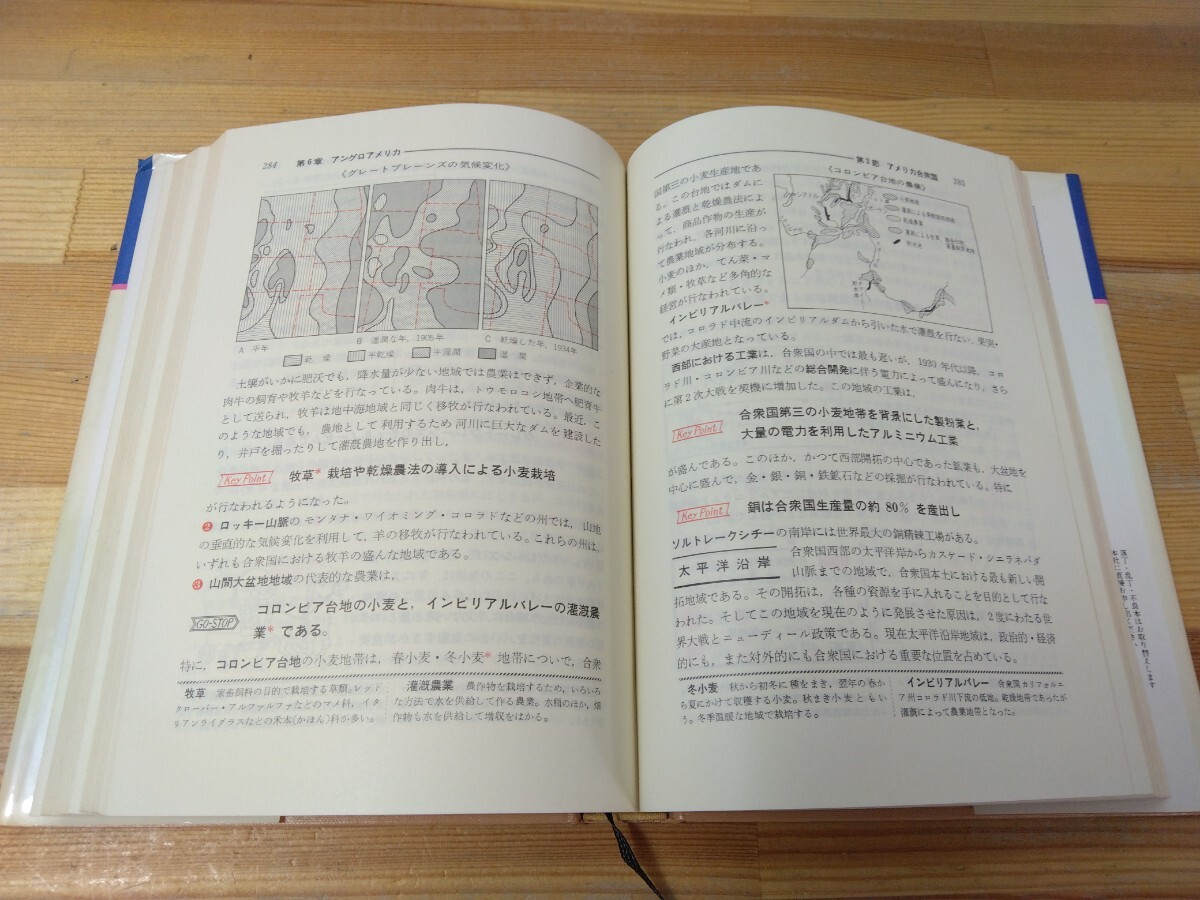 284
第6章 アングロアメリカ
《グレートプレーンズの気候変化》
A 平年
B 湿潤な年，1905年
C 乾燥した年，1934年
乾 燥
半乾燥
半湿潤
湿 潤
土壌がいかに肥沃でも，降水量が少ない地域では農業はできず，企業的な
肉牛の飼育や牧羊などを行なっている。肉牛は，トウモロコシ地帯へ肥育牛
として送られ，牧羊は地中海地域と同じく移牧が行なわれている。最近，こ
のような地域でも，農地として利用するため河川に巨大なダムを建設した
り，井戸を掘ったりして灌漑農地を作り出し，
Key Point
牧草* 栽培や乾燥農法の導入による小麦栽培
が行なわれるようになった。
❷ ロッキー山脈のモンタナ・ワイオミング・コロラドなどの州では，山地
の垂直的な気候変化を利用して，羊の移牧が行なわれている。これらの州は，
いずれも合衆国における牧羊の盛んな地域である。
❸ 山間大盆地地域の代表的な農業は，
GO-STOP
コロンビア台地の小麦と，インピリアルバレーの灌漑農
業* である。
特に，コロンビア台地の小麦地帯は，春小麦・冬小麦* 地帯についで，合衆
牧草 家畜飼料の目的で栽培する草類。レッド
クローバー・アルファルファなどのマメ科，イタ
リアンライグラスなどの禾本(かほん)科が多い。
灌漑農業 農作物を栽培するため，いろいろ
な方法で水を供給して作る農業。水稲のほか，畑
作物も水を供給して増収をはかる。
第3節 アメリカ合衆国
285
《コロンビア台地の農業》
国第三の小麦生産地であ
る。この台地ではダムに
よる灌漑と乾燥農法によ
って，商品作物の生産が
行なわれ，各河川に沿っ
て農業地域が分布する。
小麦のほか，てん菜・マ
メ類・牧草など多角的な
経営が行なわれている。
インピリアルバレー*
では，コロラド中流のインピリアルダムから引いた水で灌漑を行ない，果実・
野菜の大産地となっている。
西部における工業は，合衆国の中では最も遅いが，1930年代以降，コロ
ラド川・コロンビア川などの総合開発に伴う電力によって盛んになり，さら
に第2次大戦を契機に増加した。この地域の工業は，
Key Point
合衆国第三の小麦地帯を背景にした製粉業と，
大量の電力を利用したアルミニウム工業
が盛んである。このほか，かつて西部開拓の中心であった鉱業も，大盆地を
中心に盛んで，金・銀・銅・鉄鉱石などの採掘が行なわれている。特に
Key Point
銅は合衆国生産量の約80％を産出し
ソルトレークシチーの南岸には世界最大の銅精錬工場がある。
太平洋沿岸
合衆国西部の太平洋岸からカスケード・シエラネバダ
山脈までの地域で，合衆国本土における最も新しい開
拓地域である。その開拓は，各種の資源を手に入れることを目的として行な
われた。そしてこの地域を現在のように発展させた原因は，2度にわたる世
界大戦とニューディール政策である。現在太平洋沿岸地域は，政治的・経済
的にも，また対外的にも合衆国における重要な位置を占めている。
冬小麦 秋から初冬に種をまき，翌年の春か
ら夏にかけて収穫する小麦。秋まき小麦ともい
う。冬季温暖な地域で栽培する。
インピリアルバレー 合衆国カリフォルニ
ア州コロラド川下流の低地。乾燥地帯であったが
灌漑によって農業地帯となった。
落丁・乱丁・不良本はお取り替えします